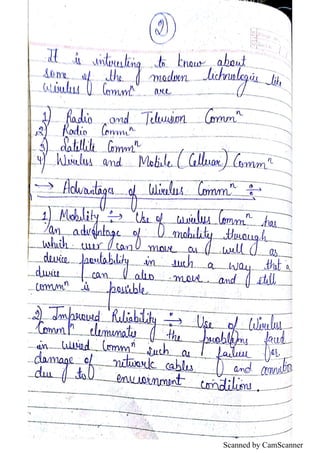 2
It is interesting to know about
some of the modern technologies like
wireless Commⁿ are
1) Radio and Television Commⁿ
2) Radio Commⁿ
3) Satillite Commⁿ
4) Wireless and Mobile (Celluar) Commⁿ
→ Advantages of Wireless Commⁿ
1) Mobility → Use of wireless Commⁿ has
an advantage of mobility through
which user can move as well as
device in such a way that a
device can also move and still
commⁿ is possible.
2) Improved Reliability → Use of Wireless
Commⁿ the problems faced
in wired Commⁿ such as failure or
damage of network cables and
due to conditions.
Scanned by CamScanner